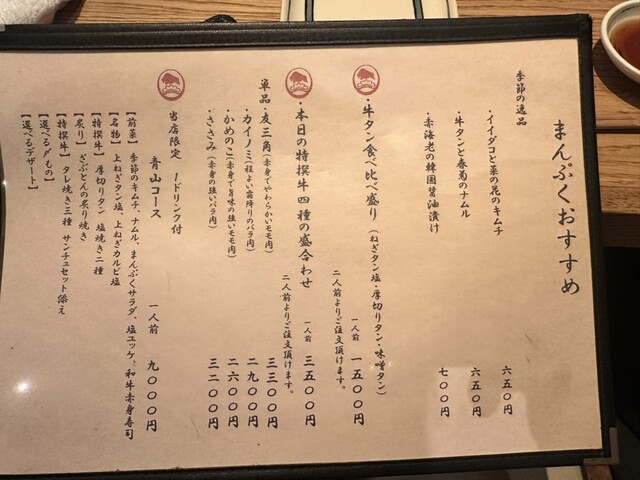 まんぷくおすすめ
季節の逸品
・イイダコと菜の花のキムチ 六五〇円
・牛タンと春菊のナムル 六五〇円
・赤海老の韓国醤油漬け 七〇〇円
・牛タン食べ比べ盛り（ねぎタン塩・厚切りタン・味噌タン） 一人前 一五〇〇円
二人前よりご注文頂けます。
・本日の特撰牛四種の盛合わせ 一人前 三五〇〇円
二人前よりご注文頂けます。
単品・友三角（赤身でやわらかいモモ肉） 三三〇〇円
・カイノミ（程よい霜降りのバラ肉） 二九〇〇円
・かめのこ（赤身で旨味の強いモモ肉） 二六〇〇円
・ささみ（赤身の強いバラ肉） 三二〇〇円
当店限定 1ドリンク付
青山コース 一人前 九〇〇〇円
【前菜】季節のキムチ、ナムル、まんぷくサラダ、塩ユッケ、和牛赤身寿司
【名物】上ねぎタン塩、上ねぎカルビ塩
【特撰牛】厚切りタン 塩焼き二種
【炙り】ざぶとんの炙り焼き
【特撰牛】タレ焼き三種 サンチュセット添え
【選べる〆もの】
【選べるデザート】